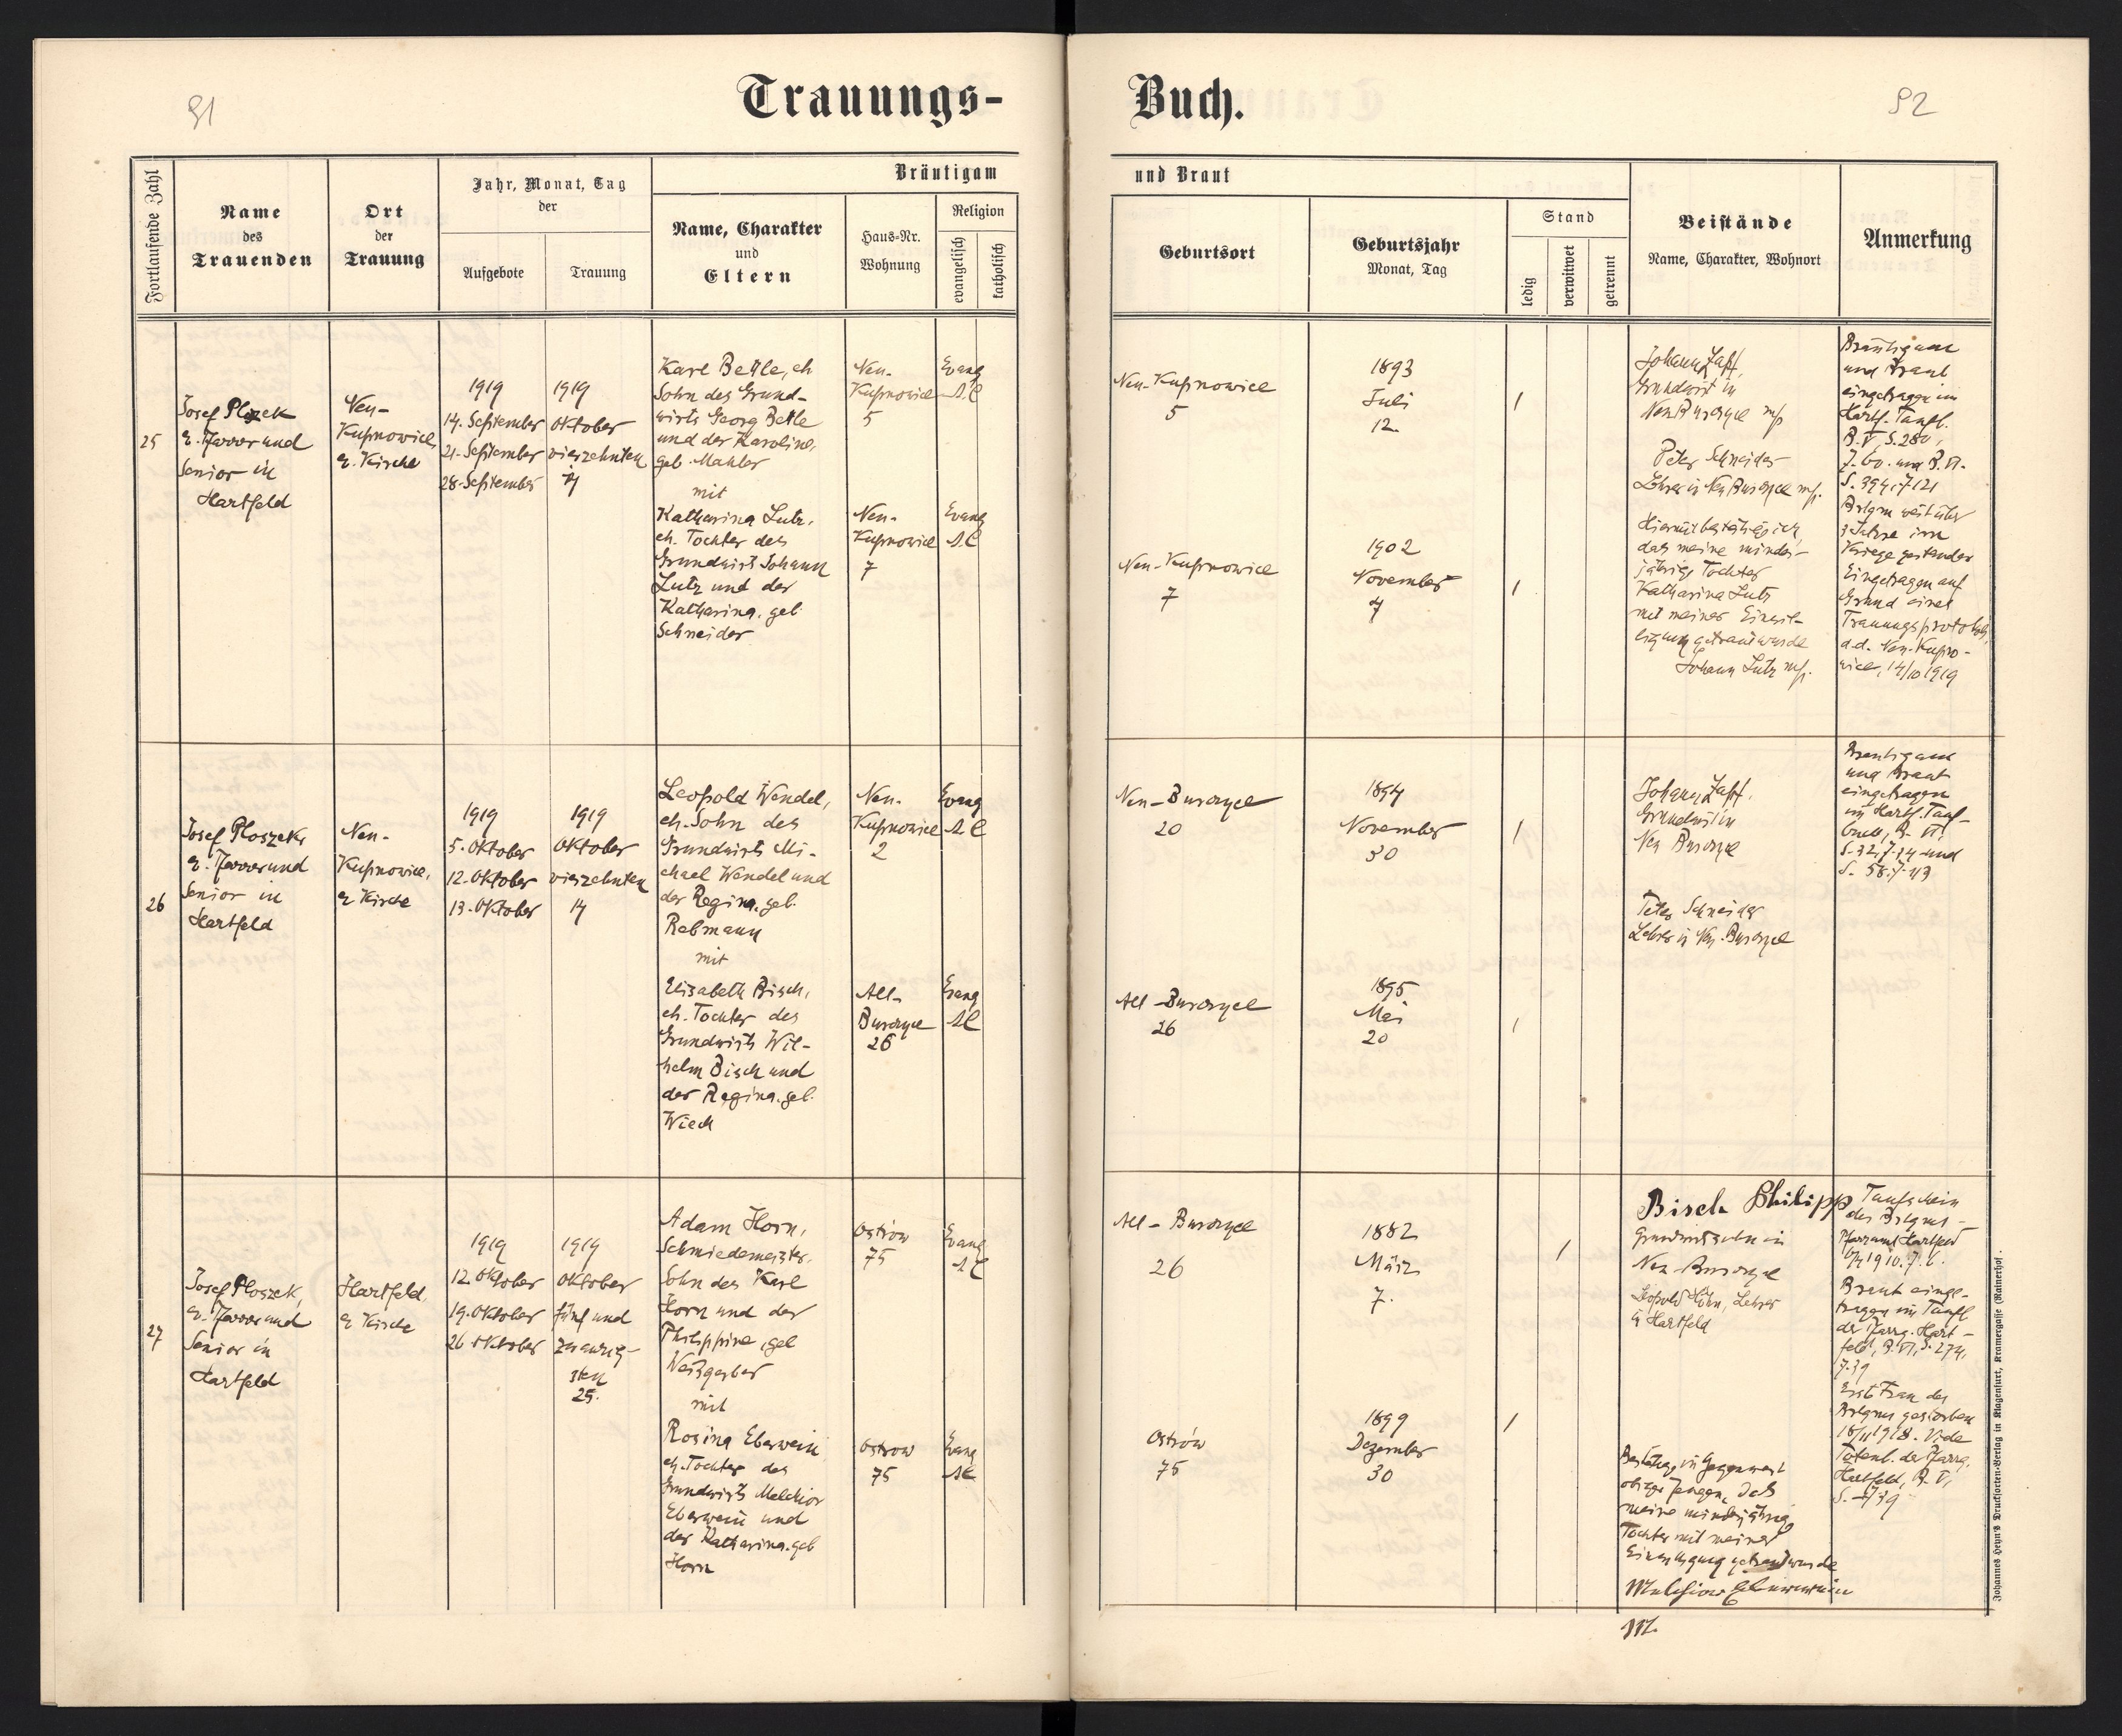 91
Trauungs-
Buch.
92
Fortlaufende Zahl
Name
des
Trauenden
Ort
der
Trauung
Jahr, Monat, Tag
der
Aufgebote
Trauung
Bräutigam
Name, Charakter
und
Eltern
Haus-Nr.
Wohnung
Religion
evangelisch
katholisch
und Braut
Geburtsort
Geburtsjahr
Monat, Tag
Stand
ledig
verwitwet
getrennt
Beistände
Name, Charakter, Wohnort
Anmerkung
25
Josef Plozek
e. Pfarrer und
Senior in
Hartfeld
Neu-
Kupnowice,
e. Kirche
1919
14. September
21. September
28. September
1919
Oktober
vierzehnten
14
Karl Betle, eh
Sohn des Grund-
wirts Georg Betle
und der Karoline,
geb. Mahler
mit
Katharina Lutz,
eh. Tochter des
Grundwirts Johann
Lutz und der
Katharina, geb.
Schneider
Neu-
Kupnowice
5
Neu-
Kupnowice
7
Evang
A.C
Evang
A.C
Neu-Kupnowice
5
Neu-Kupnowice
7
1893
Juli
12.
1902
November
7
/
/
Johann Zapf,
Grundwirt in
Neu Burczyce m/p
Peter Schneider
Lehrer in Neu Burczyce m/p.
Hiermit bestätige ich,
daß meine minder-
jährige Tochter
Katharina Lutz
mit meiner Einwil-
ligung getraut wurde
Johann Lutz m/p.
Bräutigam
und Braut
eingetragen im
Hartf. Taufb.
B. V, S. 280,
Z. 60. und B. VI.
S. 394, Z 121
Brtgm weit über
3 Jahre im
Kriege gestanden
Eingetragen auf
Grund eines
Trauungsprotokolls,
d.d. Neu-Kupno-
wice, 14/10 1919
26
Josef Ploszek,
e. Pfarrer und
Senior in
Hartfeld
Neu-
Kupnowice,
e Kirche
1919
5. Oktober
12. Oktober
13. Oktober
1919
Oktober
vierzehnten
14
Leopold Wendel,
eh. Sohn des
Grundwirts Mi-
chael Wendel und
der Regina, geb.
Rebmann
mit
Elisabeth Bisch,
eh. Tochter des
Grundwirts Wil-
helm Bisch und
der Regina, geb.
Wiech
Neu-
Kupnowice
2
Alt-
Burczyce
26
Evang
A C
Evang
AC
Neu-Burczyce
20
Alt-Burczyce
26
1894
November
30
1895
Mai
20
/
/
Johann Zapf.
Grundwirt in
Neu Burczyce
Peter Schneider
Lehrer in Neu-Burczyce
Bräutigam
und Braut
eingetragen
im Hartf. Tauf-
buch, B. VI,
S. 32, Z. 14 und
S. 58. Z. 43
27
Josef Ploszek,
e. Pfarrer und
Senior in
Hartfeld
Hartfeld,
e Kirche
1919
12. Oktober
19. Oktober
26 Oktober
1919
Oktober
fünf und
zwanzig-
sten
25.
Adam Horn,
Schmiedemeister,
Sohn des Karl
Horn und der
Philippine, geb
Weißgerber
mit
Rosina Eberwein
eh. Tochter des
Grundwirts Melchior
Eberwein und
der Katharina, geb
Horn
Ostrów
75
Ostrow
75
Evang
A C
Evang
AC
Alt-Burczyce
26
Ostrów
75
1882
März
7.
1899
Dezember
30
/
/
Bisch Philipp
Grundwirtssohn in
Neu-Burczyce
Leopold Höhn, Lehrer
in Hartfeld
Bestätige in Gegenwart
obiger Zeugen, daß
meine minderjährige
Tochter mit meiner
Einwilligung getraut wurde
Melchior Eberwein
Taufschein
des Brtgms -
Pfarramt Hartfeld
Braut einge-
tragen im Taufb
der Pfarrg. Hart-
feld, B. VI, S. 274,
Z. 39
Erste Frau des
Brtgms gestorben
18/11 1918. Vide
Totenb. der Pfarrg.
Hartfeld, B. V,
Johannes Heyn's Drucksorten-Verlag in Klagenfurt, Kramergasse (Rainerhof.